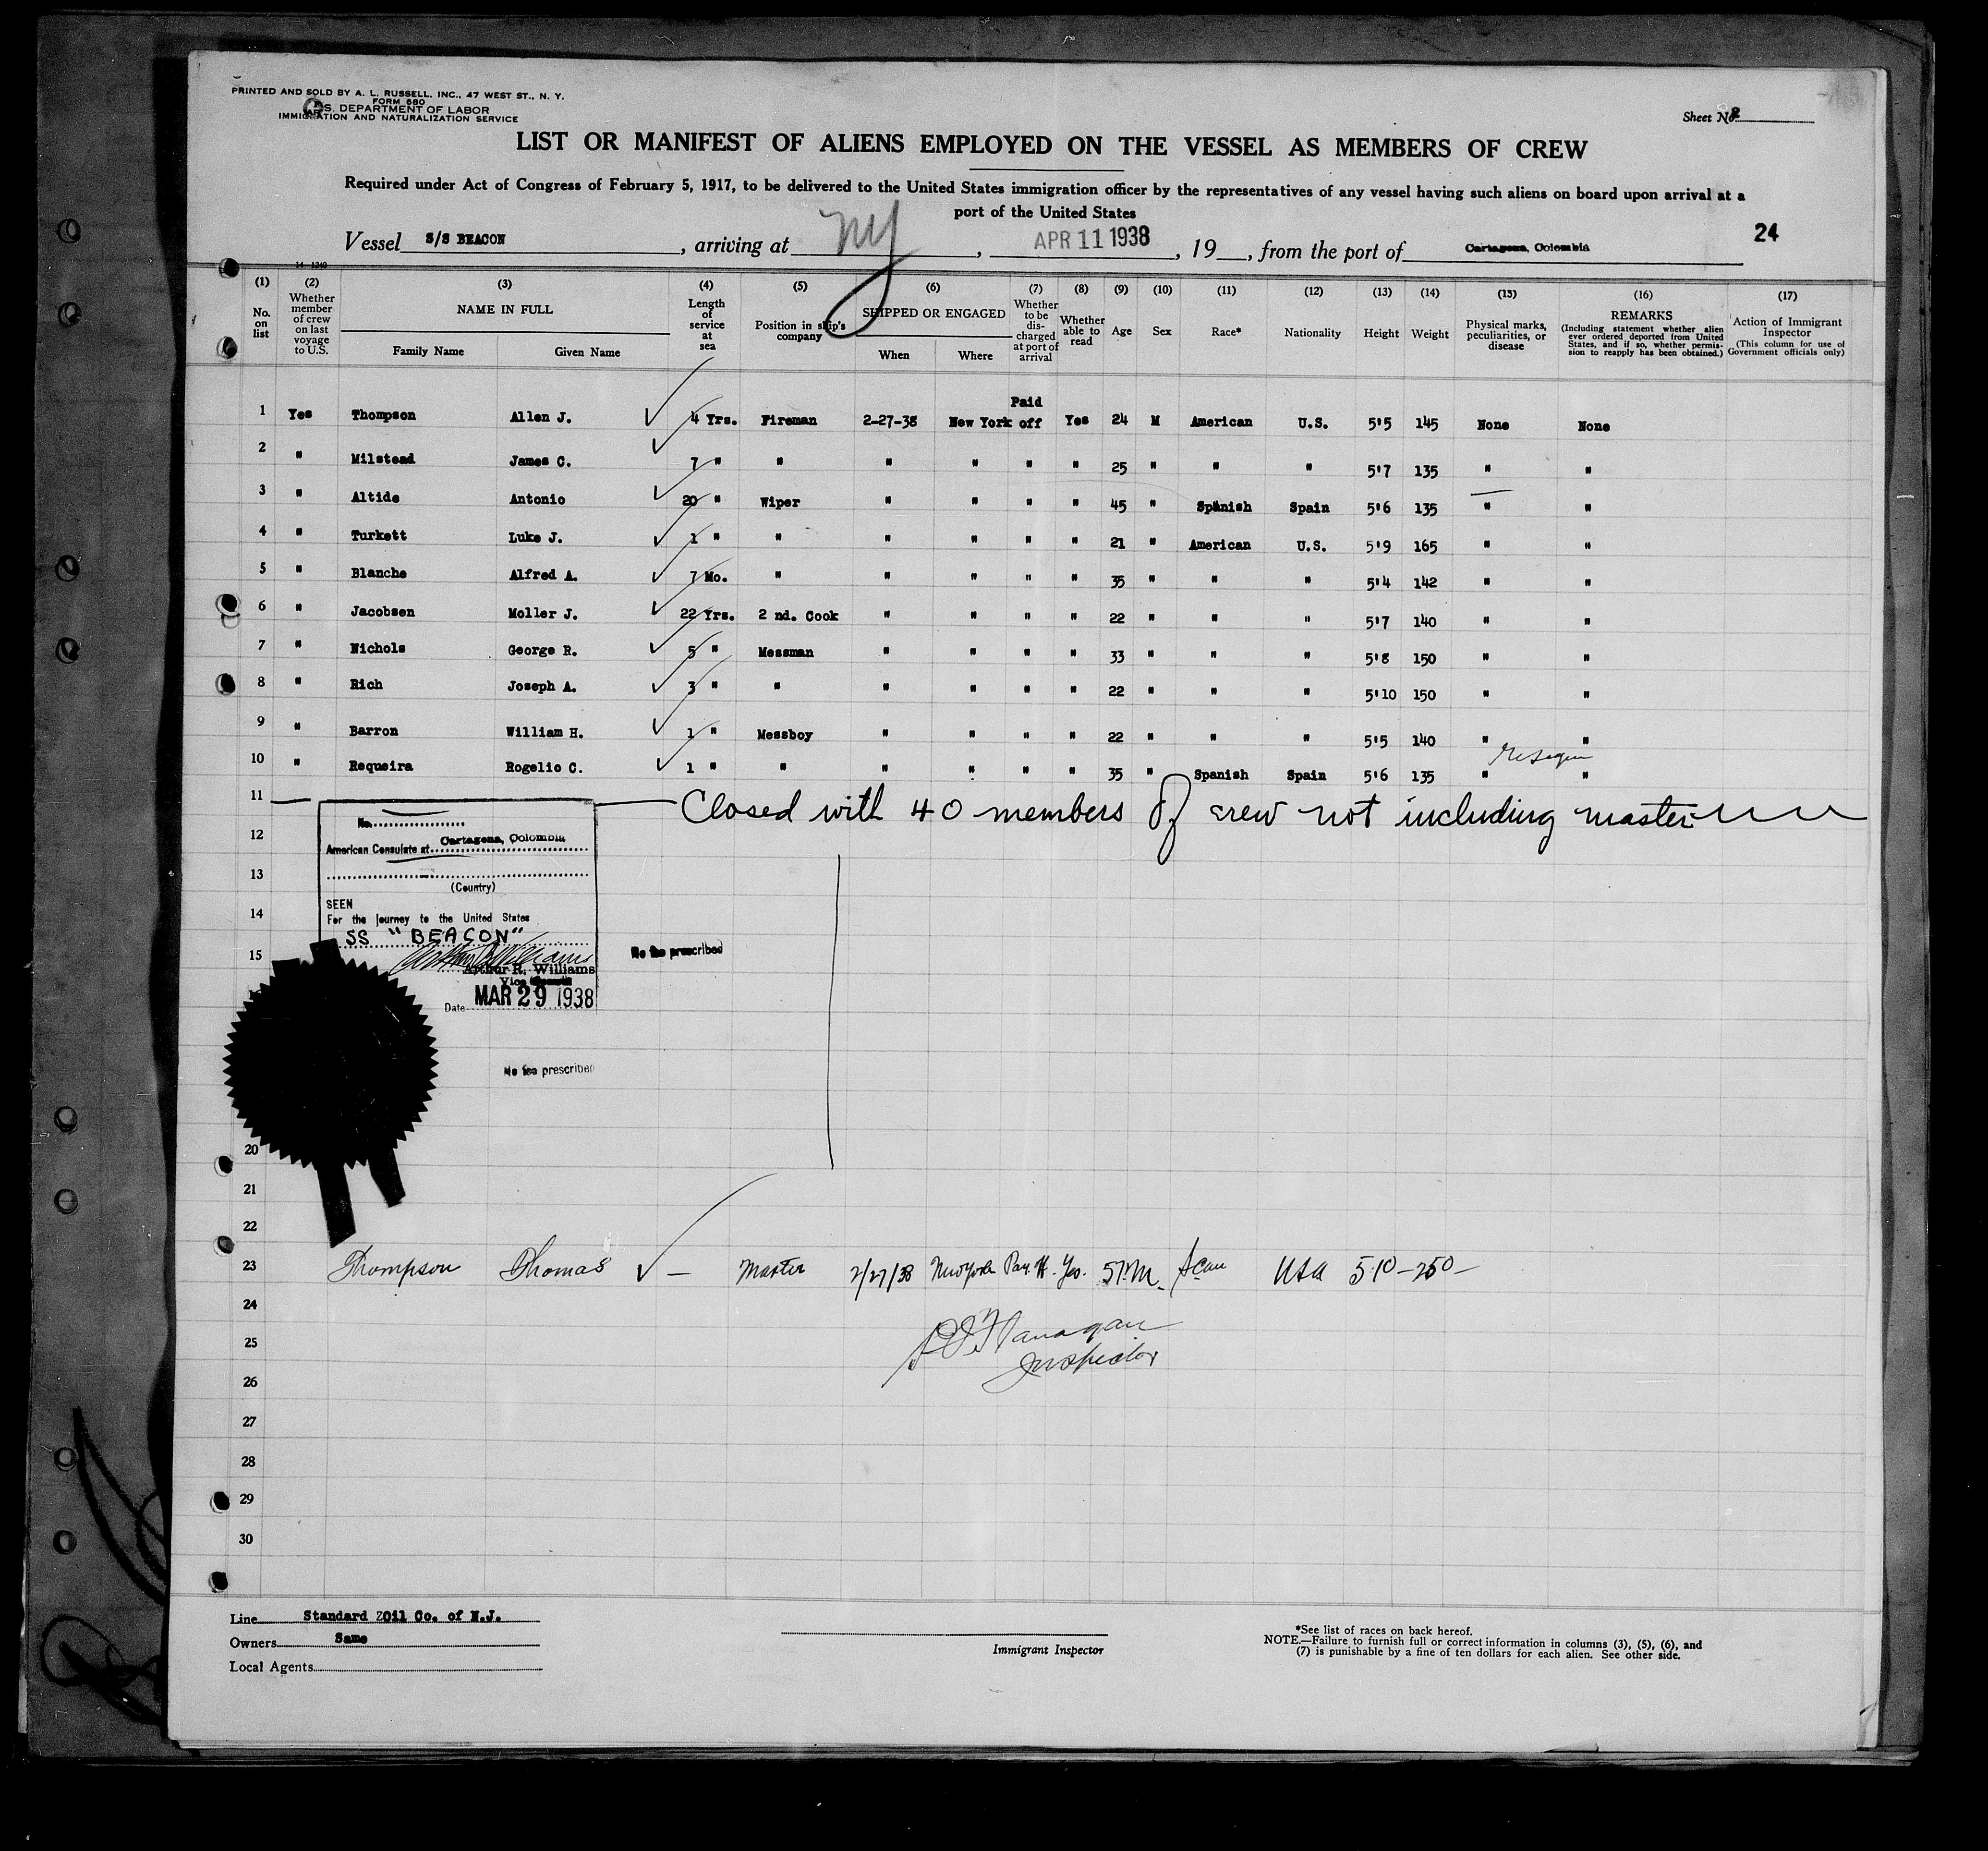 PRINTED AND SOLD BY A. L. RUSSELL, INC., 47 WEST ST., N. Y.
FORM 680
U.S. DEPARTMENT OF LABOR
IMMIGRATION AND NATURALIZATION SERVICE
Sheet No. 2
LIST OR MANIFEST OF ALIENS EMPLOYED ON THE VESSEL AS MEMBERS OF CREW
Required under Act of Congress of February 5, 1917, to be delivered to the United States immigration officer by the representatives of any vessel having such aliens on board upon arrival at a
port of the United States
24
Vessel S/S BEACON, arriving at NY, APR 11 1938, 19__, from the port of Cartagena, Colombia
14—1240
(1) (2) (3) (4) (5) (6) (7) (8) (9) (10) (11) (12) (13) (14) (15) (16) (17)
No. on list | Whether member of crew on last voyage to U.S. | NAME IN FULL Family Name Given Name | Length of service at sea | Position in ship's company | SHIPPED OR ENGAGED When Where | Whether to be discharged at port of arrival | Whether able to read | Age | Sex | Race* | Nationality | Height | Weight | Physical marks, peculiarities, or disease | REMARKS (Including statement whether alien ever ordered deported from United States, and if so, whether permission to reapply has been obtained.) | Action of Immigrant Inspector (This column for use of Government officials only)
1 Yes Thompson Allen J. ✓ 4 Yrs. Fireman 2-27-38 New York Paid off Yes 24 M American U.S. 5'5 145 None None
2 " Milstead James C. ✓ 7 " " " " " " 25 " " " 5'7 135 " "
3 " Altide Antonio ✓ 20 " Wiper " " " " 45 " Spanish Spain 5'6 135 " "
4 " Turkett Luke J. ✓ 1 " " " " " " 21 " American U.S. 5'9 165 " "
5 " Blanche Alfred A. ✓ 7 Mo. " " " " " 35 " " " 5'4 142 " "
6 " Jacobsen Moller J. ✓ 22 Yrs. 2 nd. Cook " " " " 22 " " " 5'7 140 " "
7 " Nichols George R. ✓ 5 " Messman " " " " 33 " " " 5'8 150 " "
8 " Rich Joseph A. ✓ 3 " " " " " " 22 " " " 5'10 150 " "
9 " Barron William H. ✓ 1 " Messboy " " " " 22 " " " 5'5 140 " "
10 " Requeira Rogelio C. ✓ 1 " " " " " " 35 " Spanish Spain 5'6 135 " "
11 Closed with 40 members of crew not including master
12
13
14
15
No.
American Consulate at Cartagena, Colombia
(Country)
SEEN
For the journey to the United States
SS "BEACON"
Arthur R. Williams
Arthur R. Williams
Vice Consul
Date MAR 29 1938
No fee prescribed
No fee prescribed
20
21
22
23 Thompson Thomas ✓ — Master 2/27/38 New York Yes. 57 M. Scan USA 5·10 – 250 –
24
Flanagan
25
Inspector
26
27
28
29
30
Line Standard Oil Co. of N.J.
Owners Same
Local Agents
Immigrant Inspector
*See list of races on back hereof.
NOTE.—Failure to furnish full or correct information in columns (3), (5), (6), and
(7) is punishable by a fine of ten dollars for each alien. See other side.